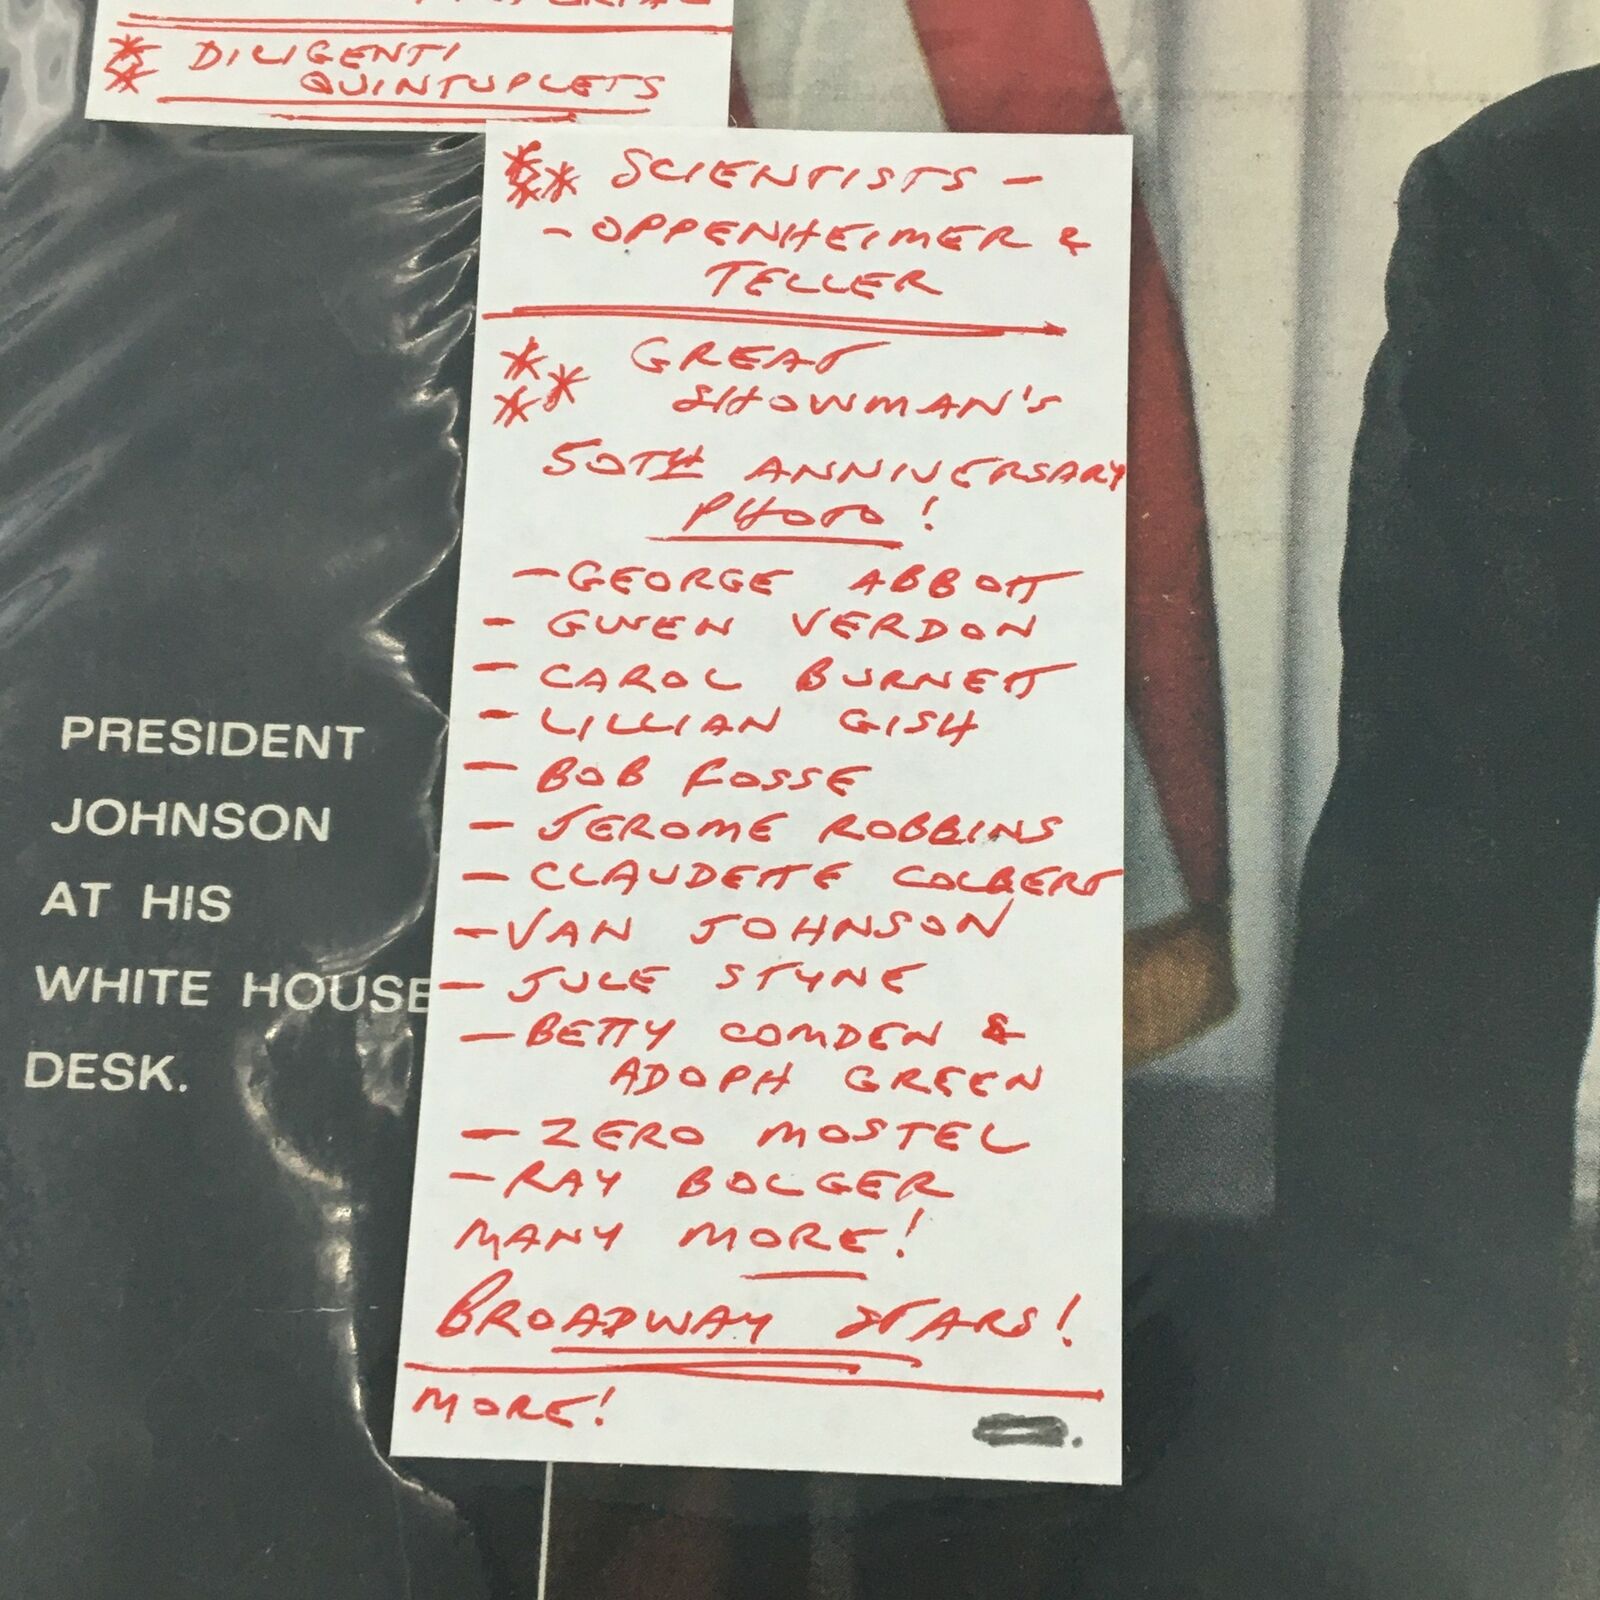 ** DILIGENTI
QUINTUPLETS
*** SCIENTISTS -
- OPPENHEIMER &
TELLER
*** GREAT
SHOWMAN'S
50TH ANNIVERSARY
PHOTO!
- GEORGE ABBOTT
- GWEN VERDON
- CAROL BURNETT
- LILLIAN GISH
- BOB FOSSE
- JEROME ROBBINS
- CLAUDETTE COLBERT
- VAN JOHNSON
- JULE STYNE
- BETTY COMDEN &
ADOPH GREEN
- ZERO MOSTEL
- RAY BOLGER
MANY MORE!
BROADWAY STARS!
MORE!
PRESIDENT
JOHNSON
AT HIS
WHITE HOUSE
DESK.